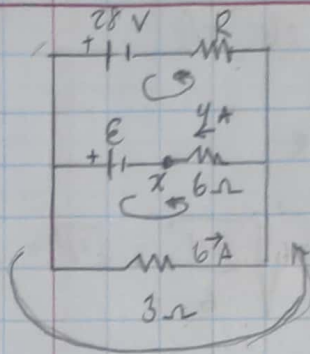 28 V R
+
ε 4 A
+
x 6 Ω
6 A
3 Ω